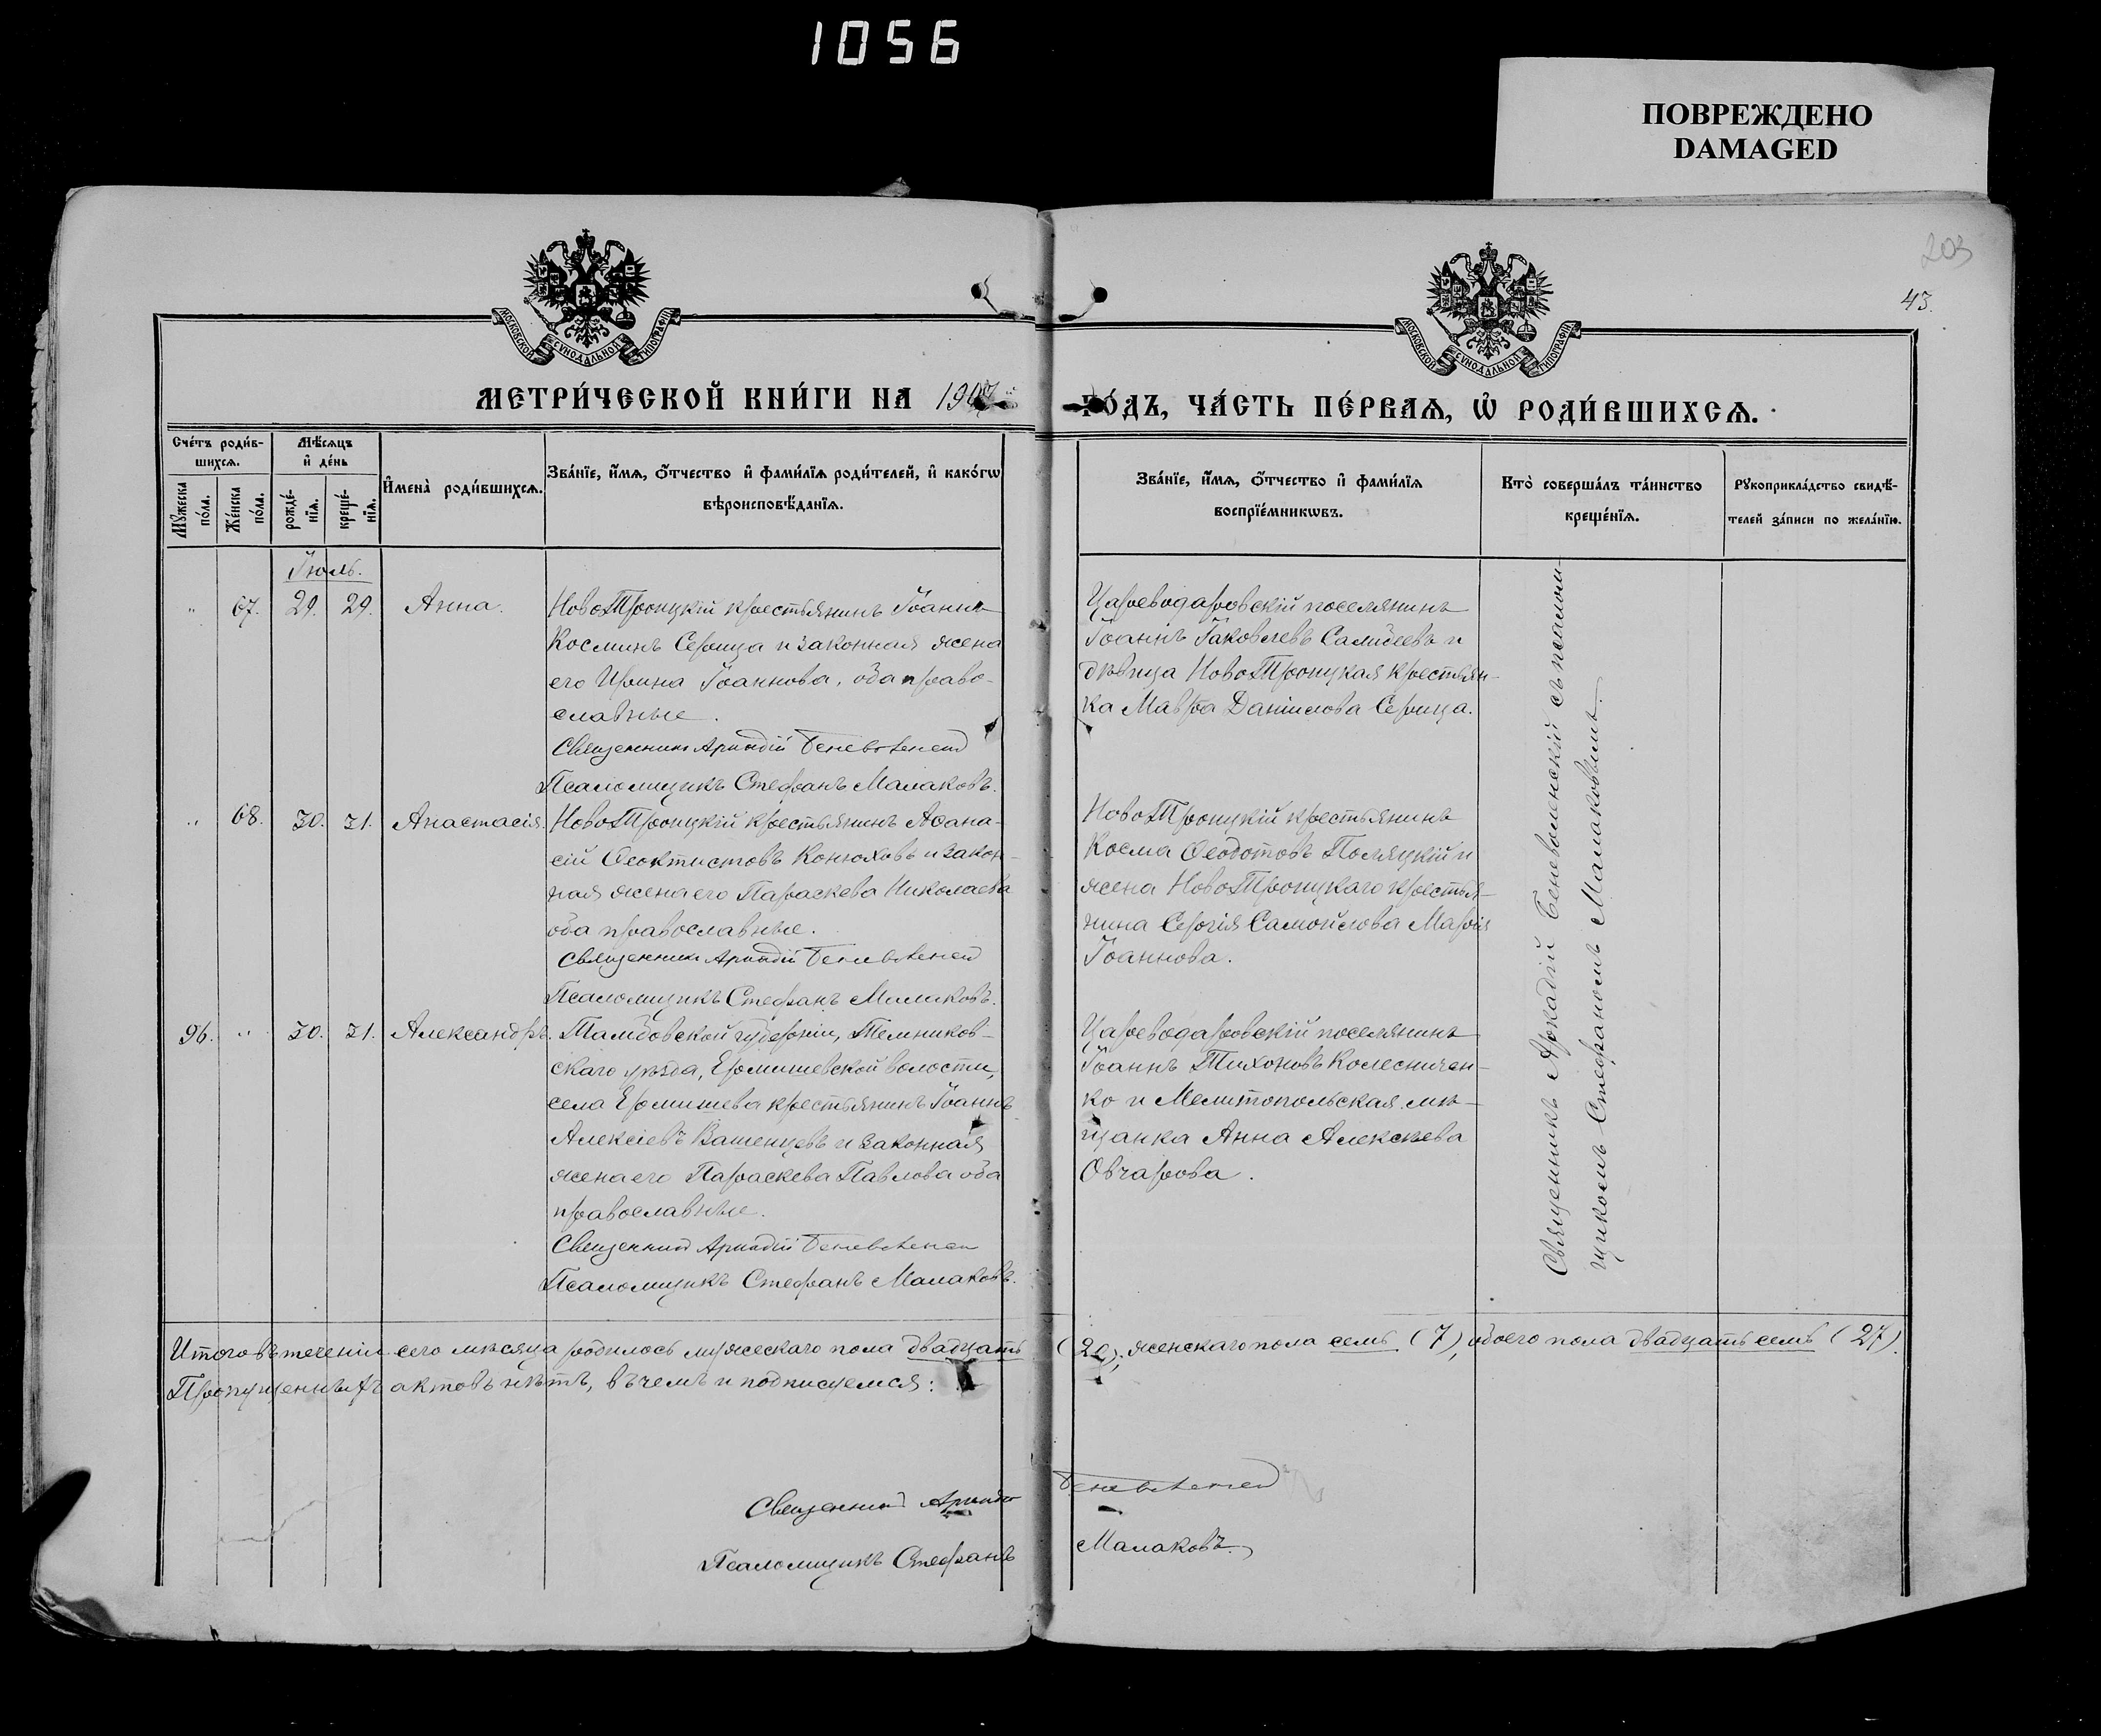 1056
ПОВРЕЖДЕНО
DAMAGED
203
43.
МОСКОВСКОЙ СУНОДАЛЬНОЙ ТИПОГРАФІИ
МОСКОВСКОЙ СУНОДАЛЬНОЙ ТИПОГРАФІИ
МЕТРИ́ЧЕСКОЙ КНИ́ГИ НА 190
ГО́ДЪ, ЧА́СТЬ ПЕ́РВАѦ, Ѿ РОДИ́ВШИХСѦ.
Сче́тъ роди́в-
шихсѧ.
Мѣ́сѧцъ
и҆ де́нь
Мꙋ́жеска
по́ла.
Же́нска
по́ла.
рожде́-
нїѧ.
креще́-
нїѧ.
И҆мена̀ роди́вшихсѧ.
Зва́нїе, и҆́мѧ, ѻ҆́тчество и҆ фами́лїѧ роди́телей, и҆ како́гѡ
вѣроисповѣ́данїѧ.
Зва́нїе, и҆́мѧ, ѻ҆́тчество и҆ фами́лїѧ
воспрїе́мникѡвъ.
Кто̀ соверша́лъ та́инство
креще́нїѧ.
Рꙋкоприкла́дство свидѣ́-
телей за́писи по жела́нїю.
Іюль.
" 67. 29. 29. Анна.
НовоТроицкій крестьянинъ Іоаннъ
Косминъ Серица и законная жена
его Ирина Іоаннова, оба право-
славные.
Священникъ Аркадій Беневоленскій
Псаломщикъ Стефанъ Малаковъ.
Цареводаровскій поселянинъ
Іоаннъ Іаковлевъ и
дѣвица НовоТроицкая крестьян-
ка Мавра Даніилова Серица.
" 68. 30. 31. Анастасія.
НовоТроицкій крестьянинъ Аѳана-
сій Ѳеоктистовъ Конюховъ и закон-
ная жена его Параскева Николаева
оба православные.
Священникъ Аркадій Беневоленскій
Псаломщикъ Стефанъ Малаковъ.
НовоТроицкій крестьянинъ
Косма Ѳеодотовъ Поляцкій и
жена НовоТроицкаго крестья-
нина Сергія Самойлова Марія
Іоаннова.
96. " 30. 31. Александръ.
Тамбовской губерніи, Темников-
скаго уѣзда, Ермишевской волости,
села Ермишева крестьянинъ Іоаннъ
Алексіевъ Вашенцевъ и законная
жена его Параскева Павлова оба
православные.
Священникъ Аркадій Беневоленскій
Псаломщикъ Стефанъ Малаковъ.
Цареводаровскій поселянинъ
Іоаннъ Тихоновъ Колесничен-
ко и Мелитопольская мѣ-
щанка Анна Алексѣева
Овчарова.
Священникъ Аркадій Беневоленскій съ псалом-
щикомъ Стефаномъ Малаковымъ.
Итого въ теченіи сего мѣсяца родилось мужескаго пола двадцать (20), женскаго пола семь (7), обоего пола двадцать семь (27).
Пропущенныхъ актовъ нѣтъ, въ чемъ и подписуемся:
Священникъ Аркадій Беневоленскій
Псаломщикъ Стефанъ Малаковъ.